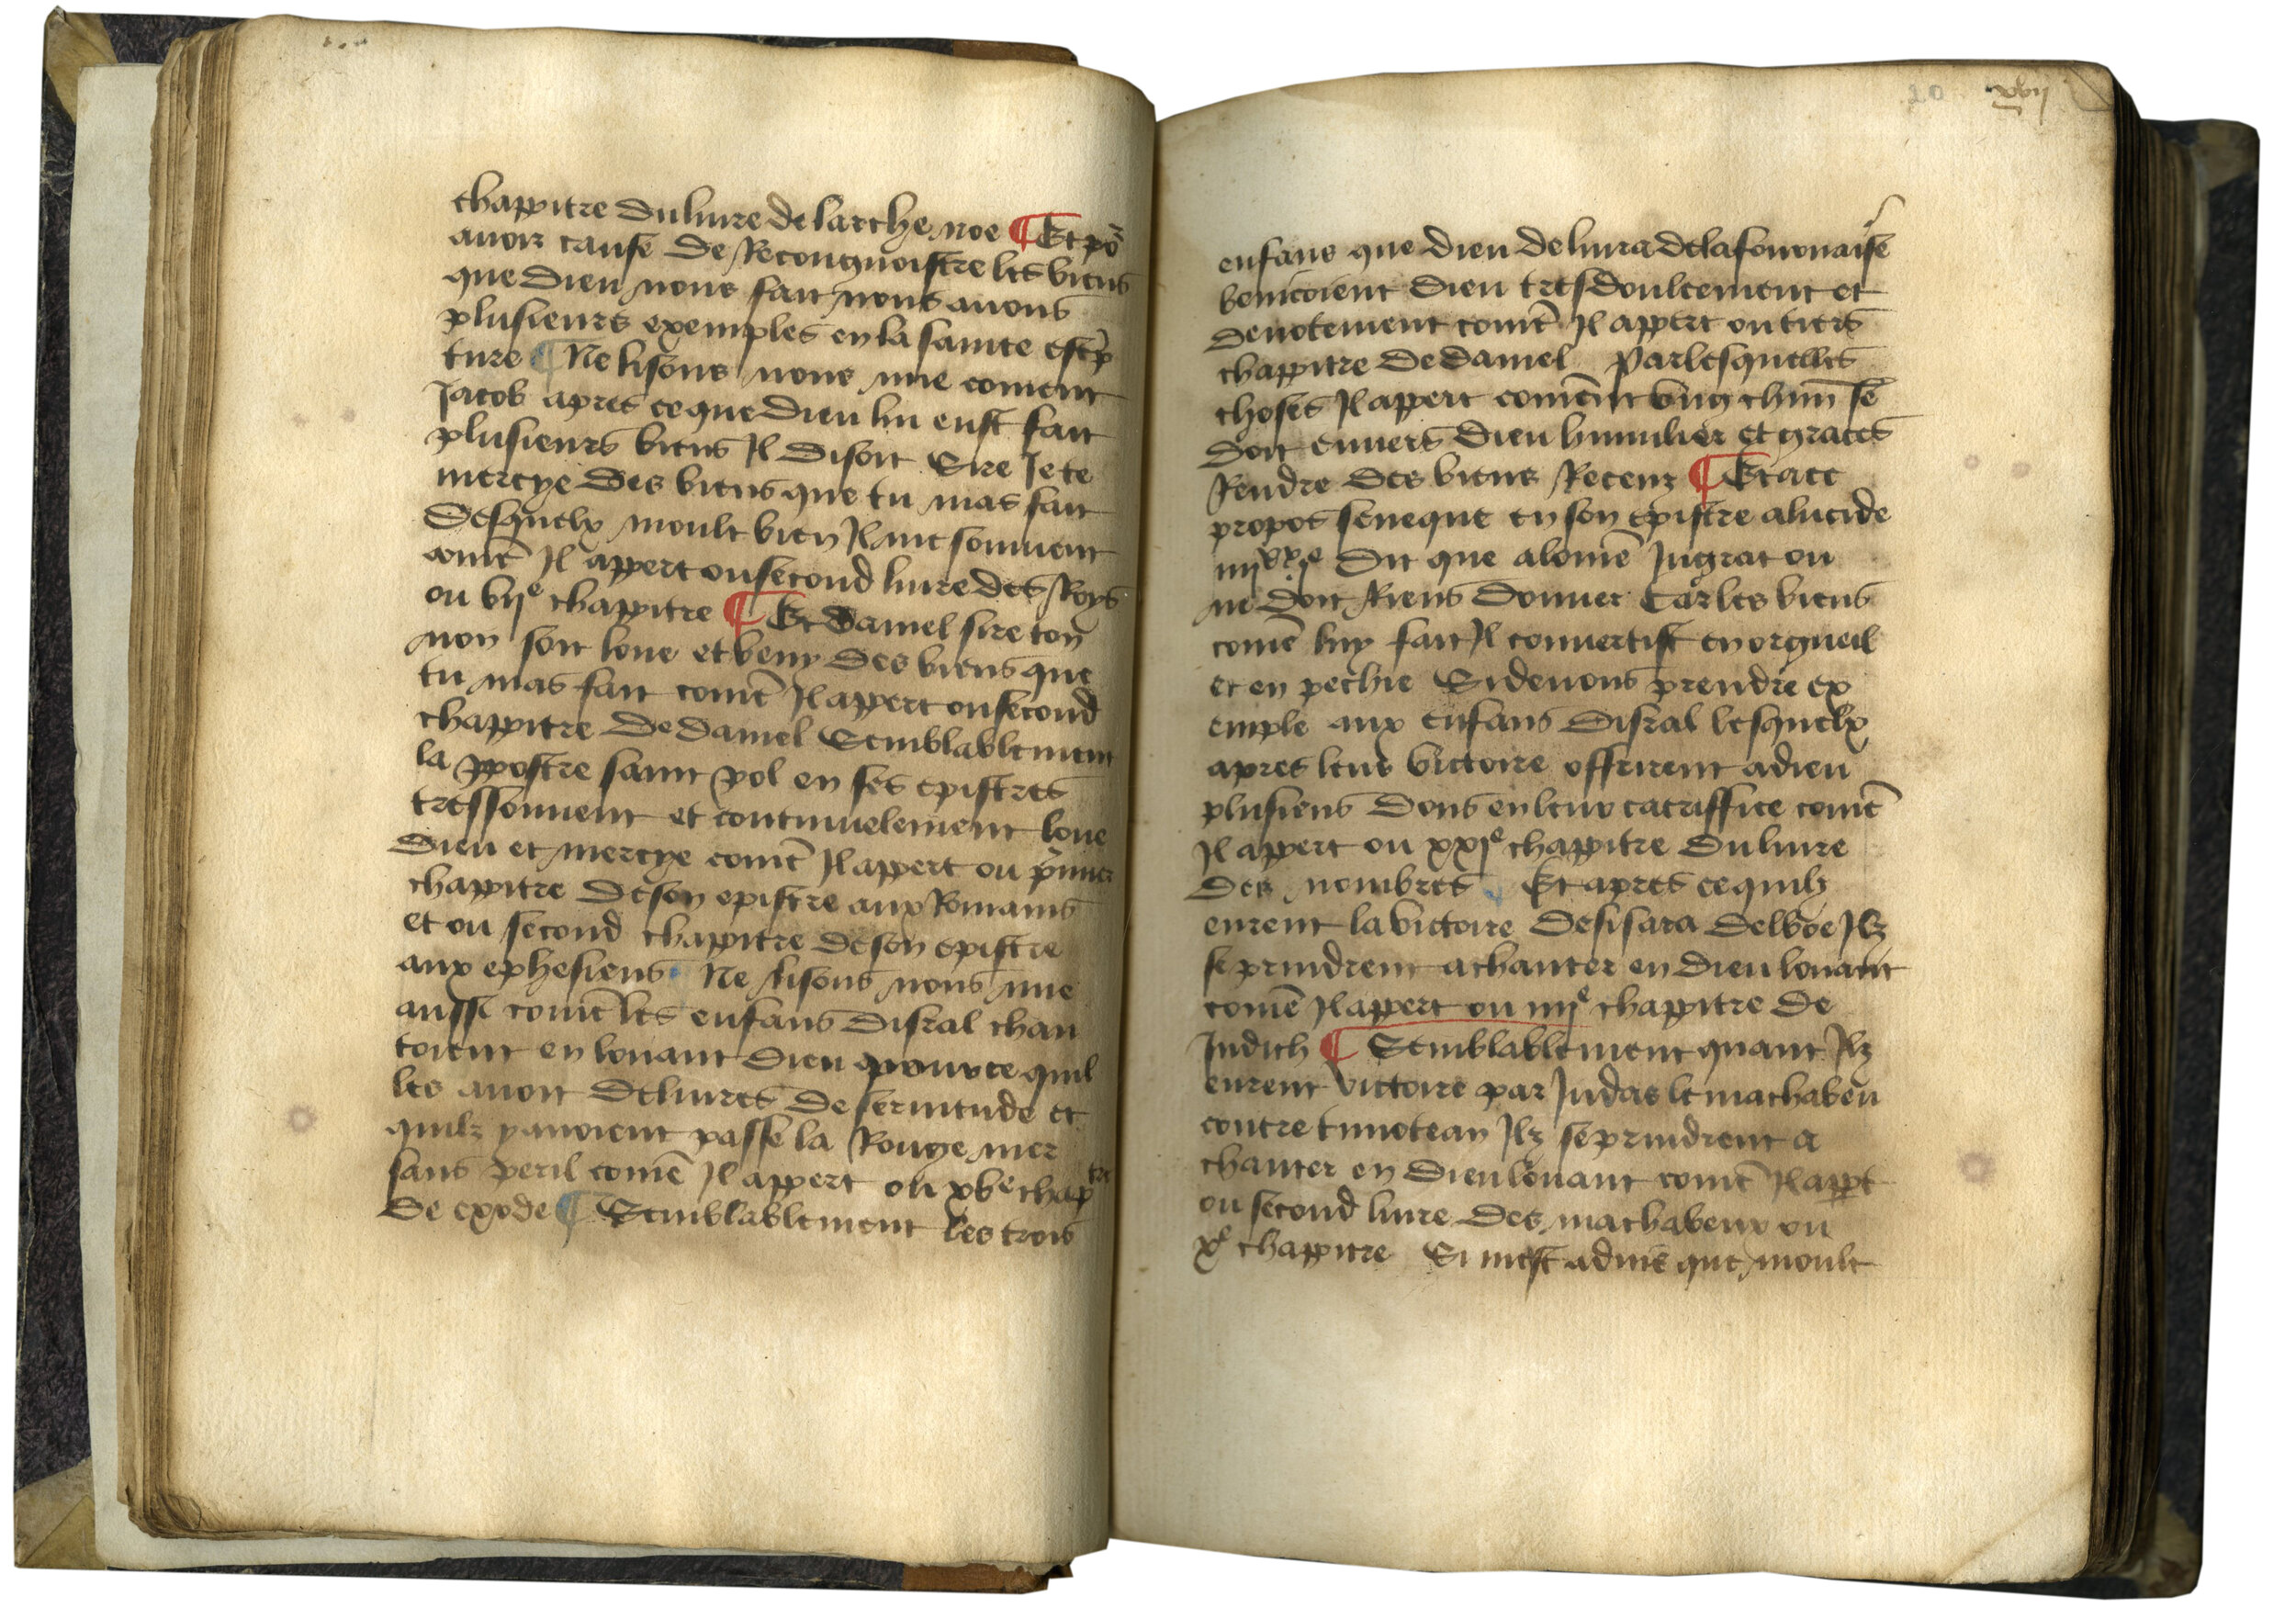 chappitre du livre de larche noe ¶ Et po᷑
avoir cause de Recongnoistre les biens
que dieu nous fait nous avons
plusieurs exemples en la sainte esc̃p
ture ¶ Ne lisons nous mie coment
Jacob apres ce que dieu lui eust fait
plusieurs biens Il disoit Sire Je te
mercye des biens que tu mas fait
Desquelx moult bien Il me souvient
com̃e Il appert ou second livre des Roys
ou vijᵉ chappitre ¶ Et daniel sire ton
non soit loue et beny des biens que
tu mas fait com̃e Il appert ou second
chappitre de daniel Semblablement
la ppostre saint pol en ses epistres
tressouvent et continuelement loue
dieu et mercye com̃e Il appert ou p̃mier
chappitre de son epistre aux Romains
et ou second chappitre de son epistre
aux ephesiens Ne lisons nous mie
aussi com̃e les enfans disral chan
toient en louant dieu pour ce quil
les avoit delivres de servitude et
quilz y avoient passe la Rouge mer
sans peril com̃e Il appert ou xvᵉ chapᵗʳᵉ
de exode ¶ Semblablement les trois
xvij
20
enfans que dieu delivra de la fournaise
benicoient dieu tresdoulcement et
devotement com̃e Il appert ou tiers
chappitre de daniel Par lesquelles
choses Il appert com̃ent ung chũn se
doit envers dieu humilier et graces
Rendre des biens Receuz ¶ Et a ce
propos seneque en son epistre a lucide
iiijˣˣijᵉ dit que a lom̃e Ingrat on
ne doit Riens donner Car les biens
com̃e luy fait Il convertist en orgueil
et en pechie Si devons prendre ex
emple aux enfans disral lesquelx
apres leur victoire offrirent a dieu
plusieus dons en leur cacriffice com̃e
Il appert ou xxjᵉ chappitre du livre
des nombres Et apres ce quilz
eurent la victoire de sisara delboe Ilz
se prindrent a chanter en dieu louant
com̃e Il appert ou iiijᵉ chappitre de
Judich ¶ Semblablement quant Ilz
eurent victoire par Judas le machabeu
contre timotean Ilz se prindrent a
chanter en dieu louant com̃e Il app̱t
ou second livre des machabeux ou
xᵉ chappitre Si mest advis que moult